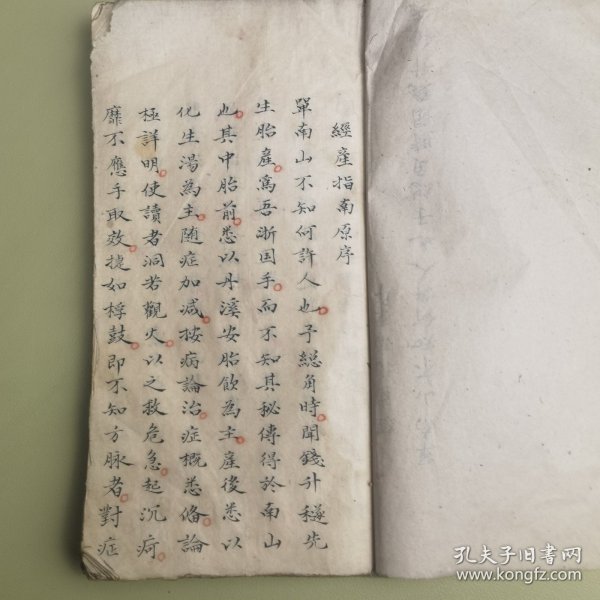 經產指南原序
單南山不知何許人也予總角時聞錢升穟先
生胎產為吾浙国手而不知其秘傳得於南山
也其中胎前悉以丹溪安胎飲為主產後悉以
化生湯為主随症加减按病論治症概悉俻論
極詳明使讀者洞若觀火以之救危急起沉疴
靡不應手取效捷如桴鼓即不知方脉者對症
孔夫子旧书网
www.kongfz.com